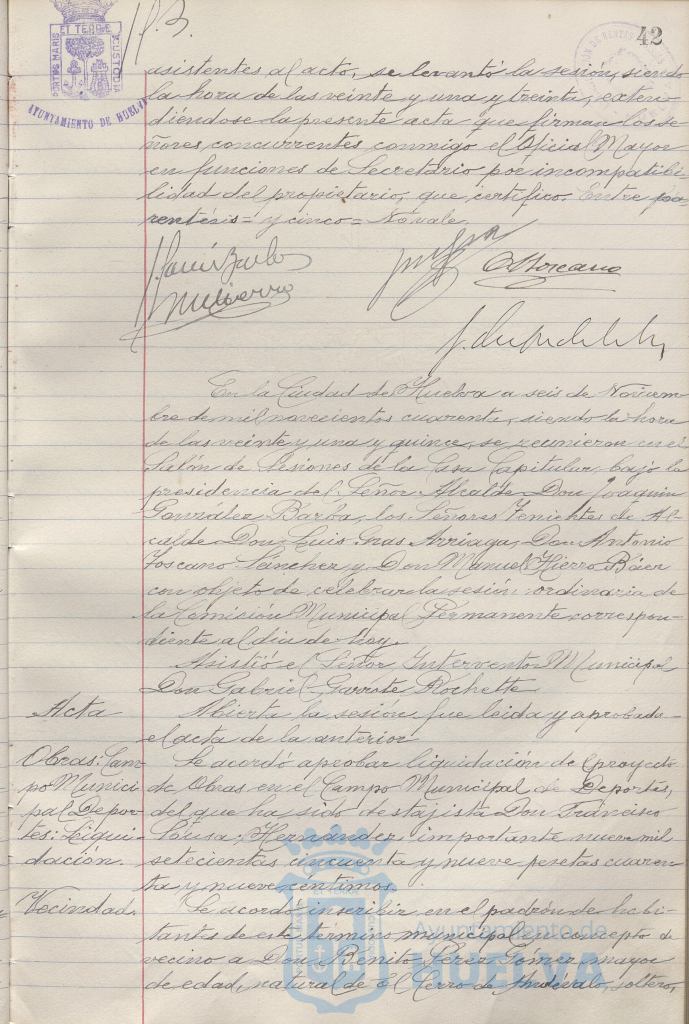 42
PORTUS MARIS ET TERRE CUSTODIA
AYUNTAMIENTO DE HUELVA
asistentes al acto, se levantó la sesión, siendo
la hora de las veinte y una y treinta, exten
diéndose la presente acta que firman los se
ñores concurrentes conmigo el Oficial Mayor
en funciones de Secretario por incompatibi
lidad del propietario, que certifico. Entre pa
rentésis = y cinco = No vale
En la Ciudad de Huelva a seis de Noviem
bre de mil novecientos cuarenta, siendo la hora
de las veinte y una y quince, se reunieron en el
Salón de Sesiones de la Casa Capitular, bajo la
presidencia del Señor Alcalde Don Joaquin
González Barba, los Señores Tenientes de Al-
calde Don Luis Arriaga, Don Antonio
Toscano Sánchez y Don Manuel Hierro Báer
con objeto de celebrar la sesión ordinaria de
la Comisión Municipal Permanente correspon-
diente al dia de hoy.
Asistió el Señor Interventor Municipal
Don Gabriel Garrote Rochette
Acta
Abierta la sesión fue leida y aprobada
el acta de la anterior
Obras: Cam
po Munici
pal Depor-
tes: Liqui-
dación.
Se acordó aprobar liquidación del proyecto
de Obras en el Campo Municipal de Deportes,
del que ha sido destajista Don Francisco
Sousa Hernández importante nueve mil
setecientas cincuenta y nueve pesetas cuaren
ta y nueve céntimos.
Vecindad.
Se acordó inscribir en el padrón de habi
tantes de este término municipal en concepto de
vecino a Don Benito Pérez Gomez, mayor
de edad, natural de El Cerro de Andévalo, soltero,
Ayuntamiento de
HUELVA